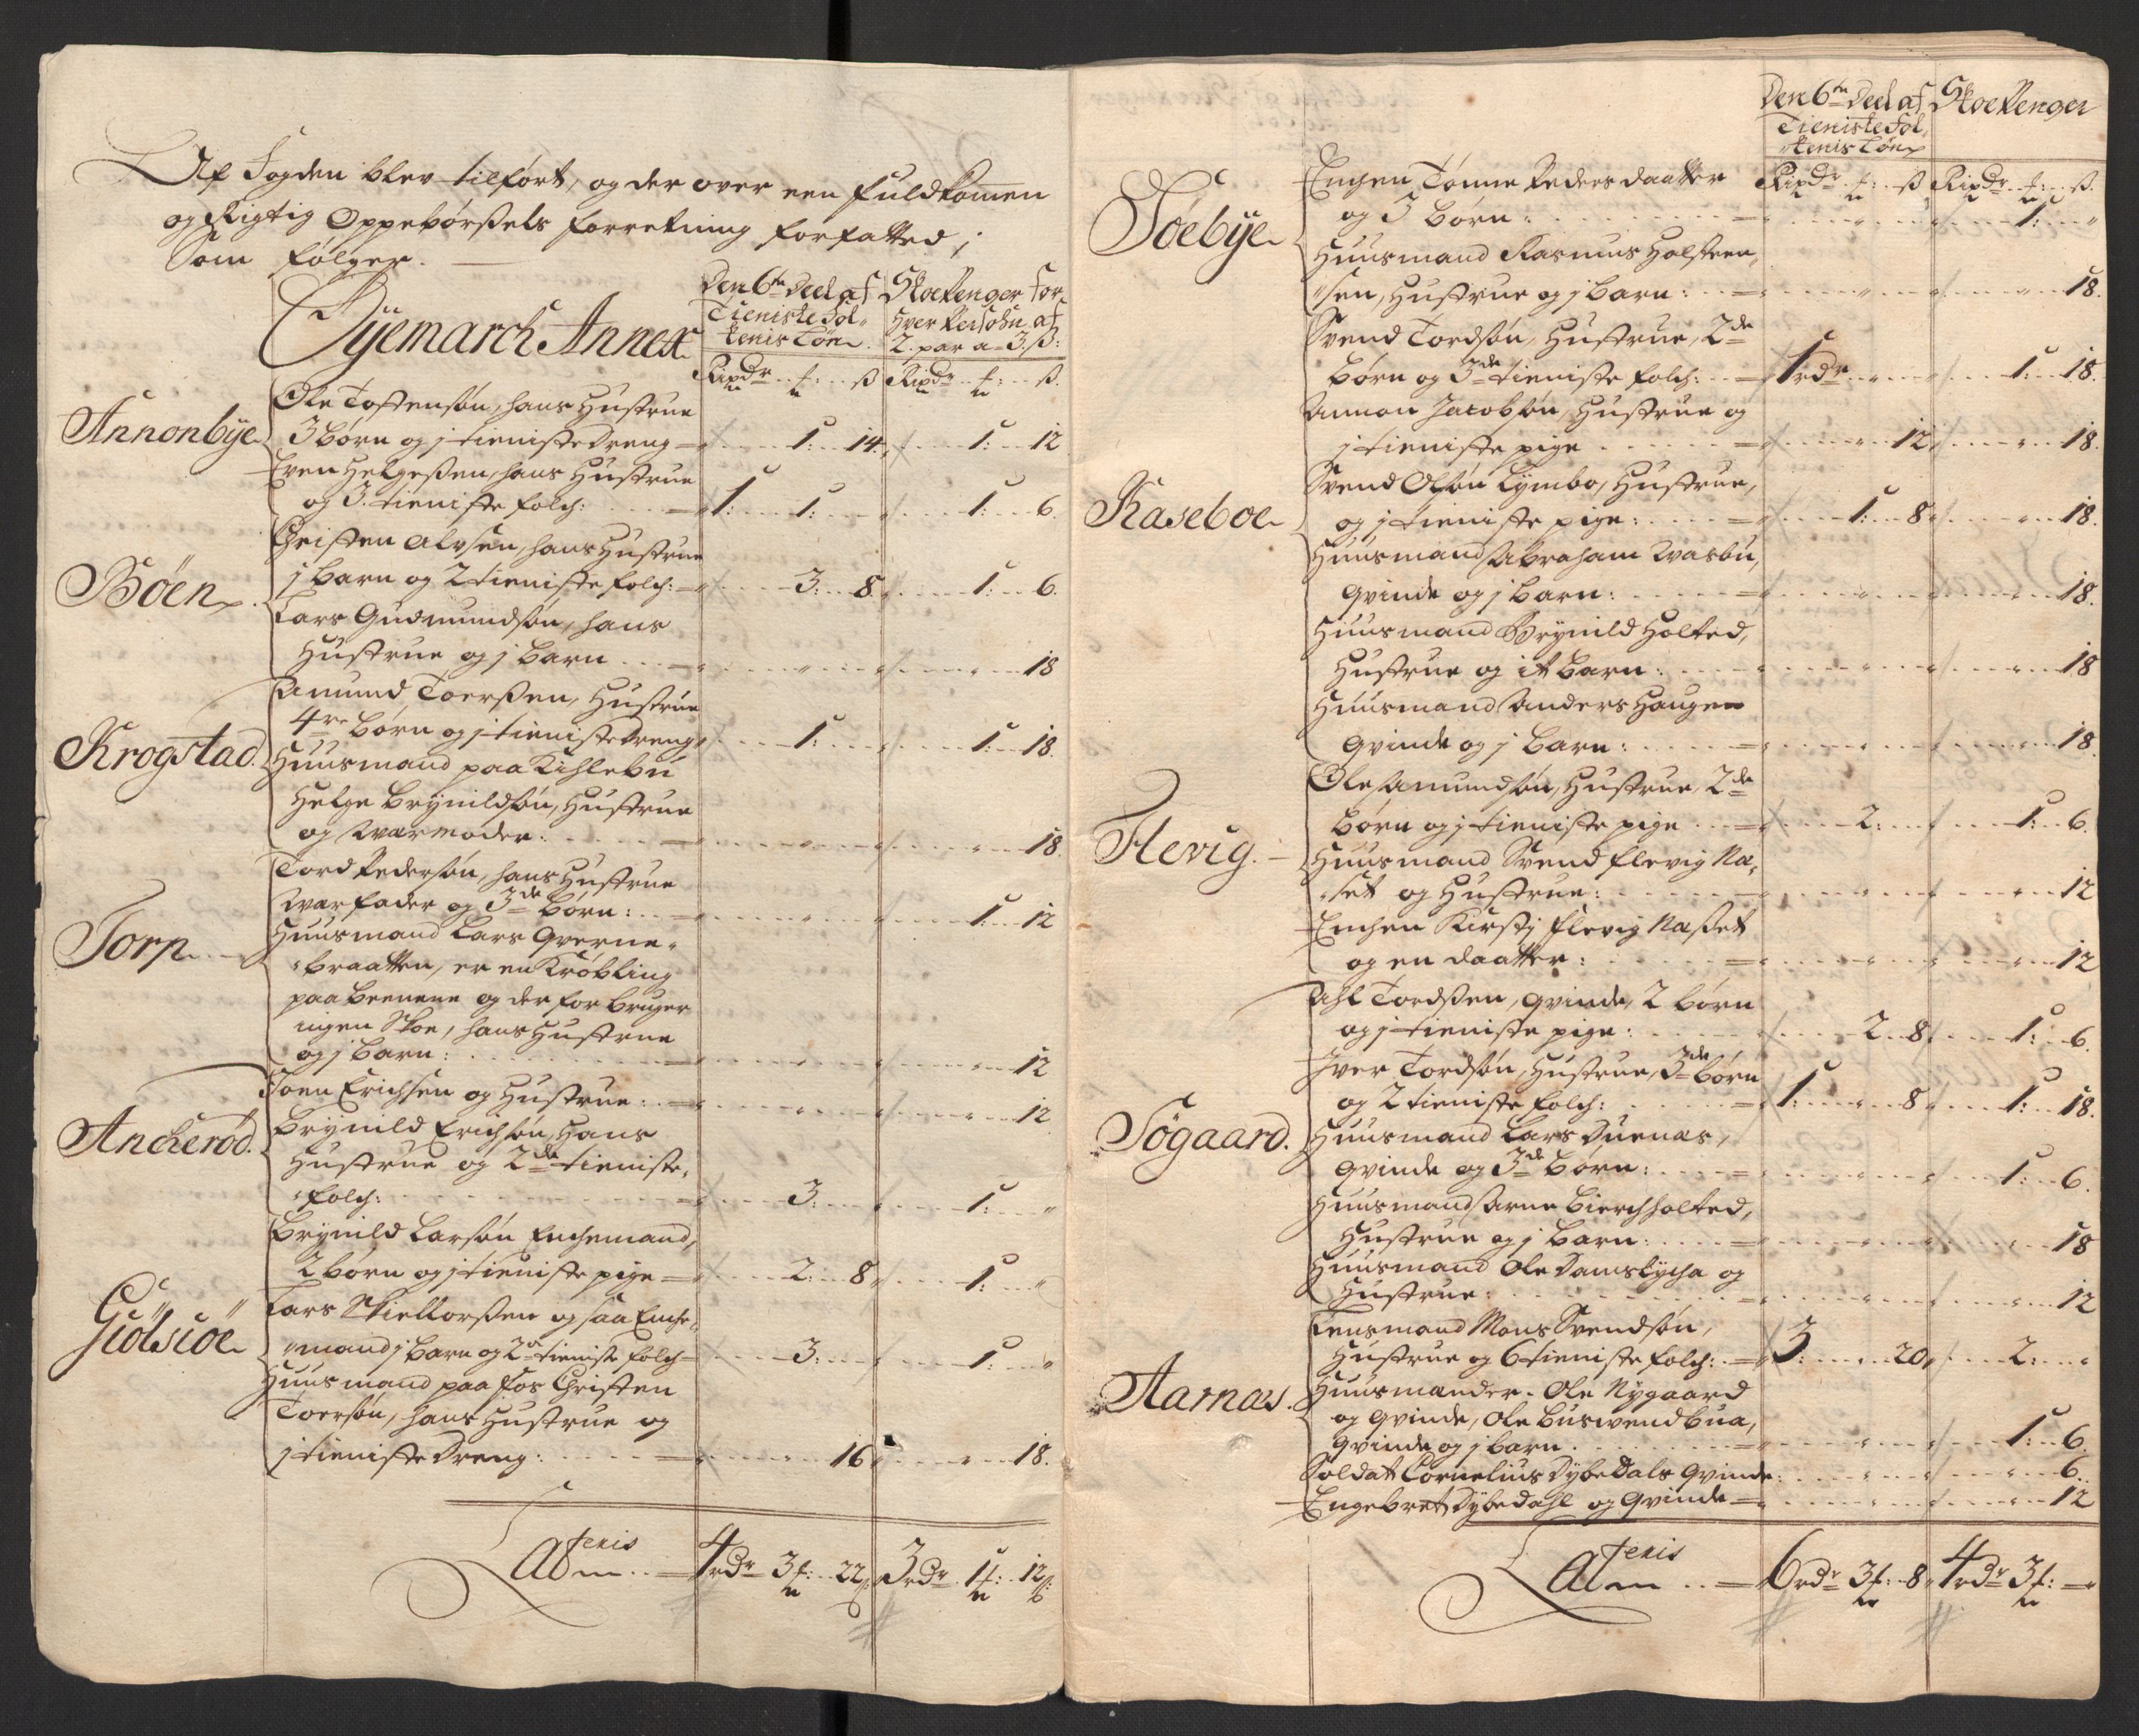 Af Fogden blev tilført, og der over een fuldkomen
og Rigtig Oppebørßels forretning forfatted;
Som følger.
Øyemarch Annex
Den 6te Deel af
Tieniste Fol-
kenis Løn
Skoe Penger for
hver Persohn af
2. par a 3 ß:
Rixdr ß Rixdr ß.
Annonbÿe
Ole Tostensøn, hans Hustrue
3 børn og j tieniste dreng 1: 14. 1: 12
Even Helgeßen, hans Hustrue
og 3. tieniste folch: 1: 1: 1: 6.
Bøen
Christen Alvsen, hans Hustrue
j barn og 2 tieniste folch: 3: 8. 1: 6.
Lars Gudmundsøn, hans
Hustrue og j barn 18
Krogstad.
Amund Toerßen, Hustrue
4re børn og j tieniste dreng 1: 1: 18.
Huusmand paa Kihlebu
Helge Brynildsøn, Hustrue
og Warmoder: 18.
Torp
Tord Pedersøn, hans Hustrue
Warfader og 3de børn: 1: 12
Huusmand Lars Qverne-
braatten, er en Krøbling
paa beenene og der for bruger
ingen Skoe, hans Hustrue
og j barn: 12
Ancherød.
Joen Erichsen og Hustrue: 12
Brynild Erichsøn, hans
Hustrue og 2de tieniste-
folch: 3: 1:
Giølsiøe
Brynild Larsøn Enchemand,
2 børn og j tieniste pige 2: 8 1:
Lars Kiellorßen og saa Enche-
mand j barn og 2de tieniste folch 3: 1:
Huusmand paa Fos Christen
Toersøn, hans Hustrue og
j tieniste dreng: 16 18.
Lateris 4 rdr 3 22 ß 3 rdr 1 12 ß
Den 6te Deel af
Tieniste Fol-
kenis Løn
Skoe Penger
Rixdr ß Rixdr ß.
Søebÿe
Enchen Tonne Peders daatter
og 3 børn: 1:
Huusmand Rasmus Holsteen-
sen, Hustrue og j barn: 18.
Svend Tordsøn, Hustrue, 2de
børn og 3de tieniste folch: 1 rdr 1: 18.
Kaseboe
Amon Jacobsøn, Hustrue og
j tieniste pige 12 18.
Svend Olsøn Lymbo, Hustrue,
og j tieniste pige: 1: 8 18.
Huusmand Abraham Wasbu,
Qvinde og j barn: 18.
Huusmand Brynild Holted,
Hustrue og it barn: 18
Huusmand Anders Haugen
Qvinde og j barn: 18
Flevig.
Ole Amundsøn, Hustrue, 2de
børn og j tieniste pige 2: 1: 6.
Huusmand Svend Flevig Na-
set og Hustrue: 12
Enchen Kirstj Flevig Naßet
og en daatter: 12
Søgaard.
Ahl Tordßen, Qvinde, 2 børn
og j tieniste pige: 2 8 1: 6.
Iver Tordsøn, Hustrue, 3de børn
og 2 tieniste folch: 1: 8 1: 18.
Huusmand Lars Duenas,
Qvinde og 3de børn: 1: 6.
Huusmand Arne Bierchholted,
Hustrue og j barn: 18
Huusmand Ole Damslycha og
Hustrue: 12
Aarnas.
Lensmand Mons Svendsøn,
Hustrue og 6 tieniste folch: 3: 20 2:
Huusmænder. Ole Nygaard
og Qvinde, Ole Buswendbua,
Qvinde og j barn 1: 6.
Soldat Cornelius Dybedals Qvinde: 6.
Engebret Dybedahl og Qvinde 12
Lateris 6 rdr 3 8 4 rdr 3